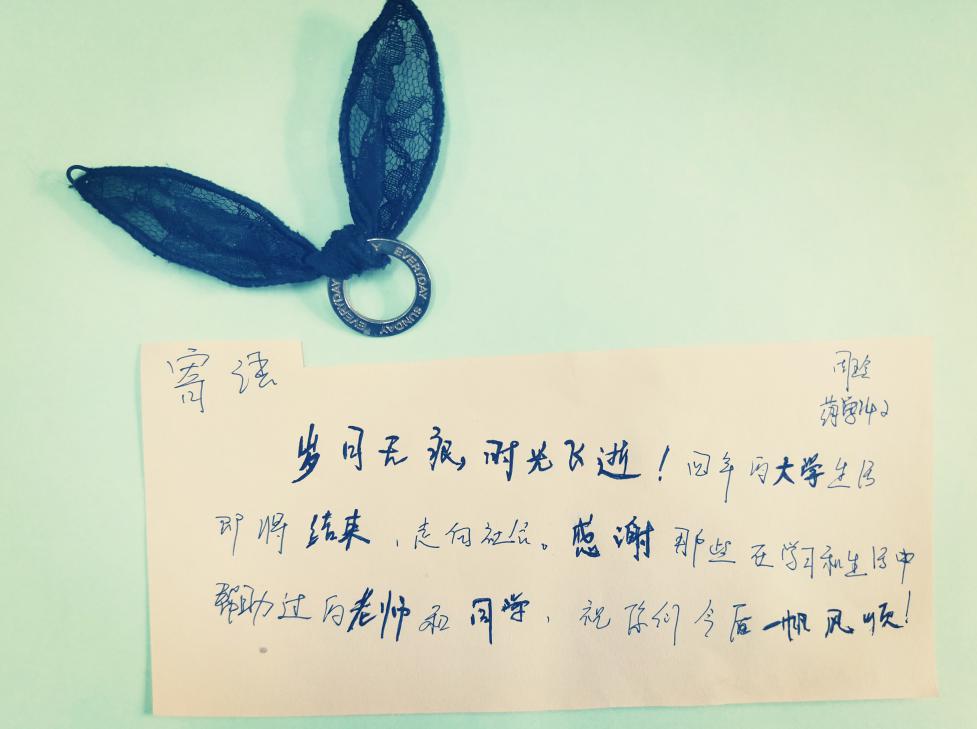 EVERYDAY SUNDAY EVERYDAY
寄语
药学142
岁月无痕，时光飞逝！四年的大学生活
即将结束，走向社会。感谢那些在学习和生活中
帮助过的老师和同学，祝你们今后一帆风顺！